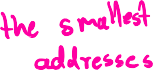 the smallest
addresses